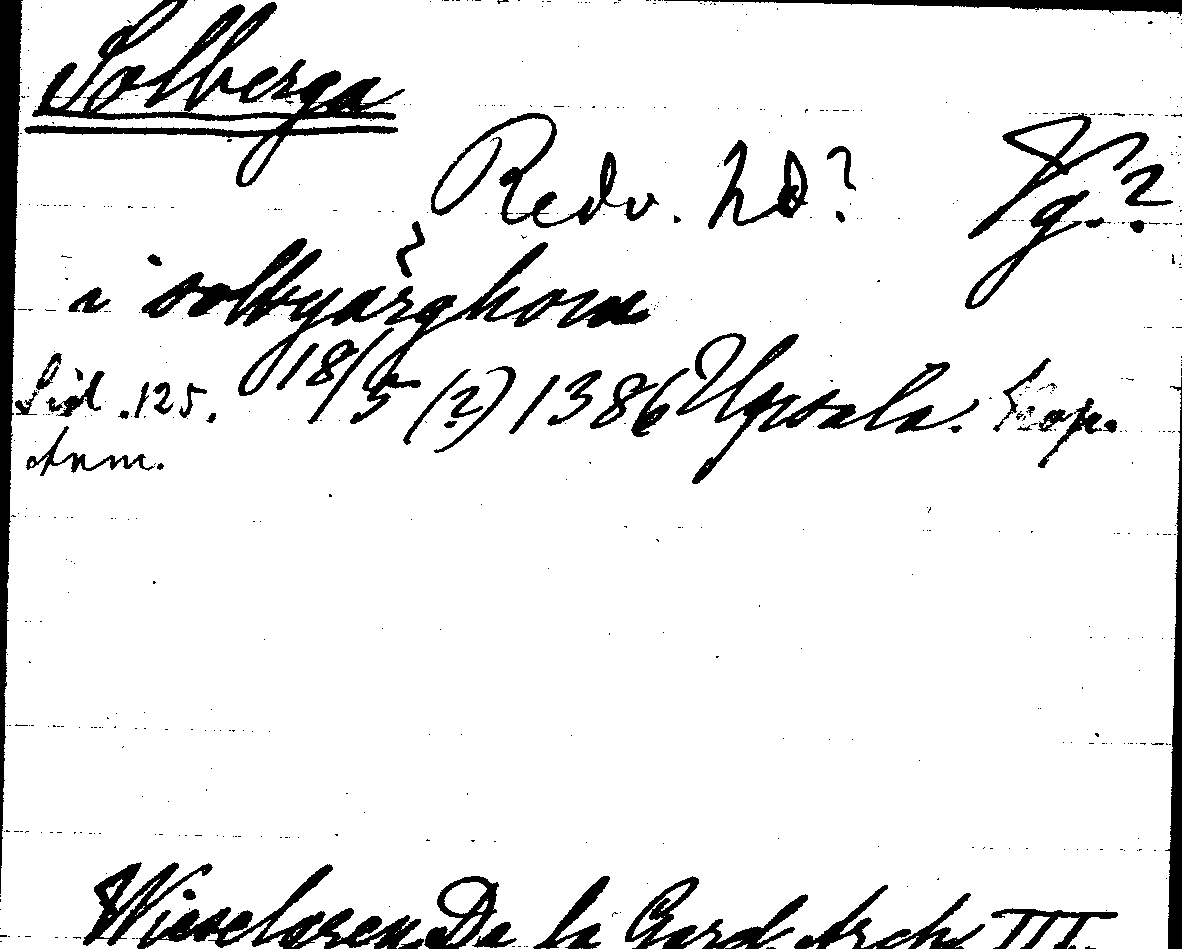 Solberga
Redv. hd? Vg.?
i solbyärghom
Sid. 125. 18/5 (?) 1386 Upsala. Kop.
Anm.
Wieselgren De la Gard. Arch. III.